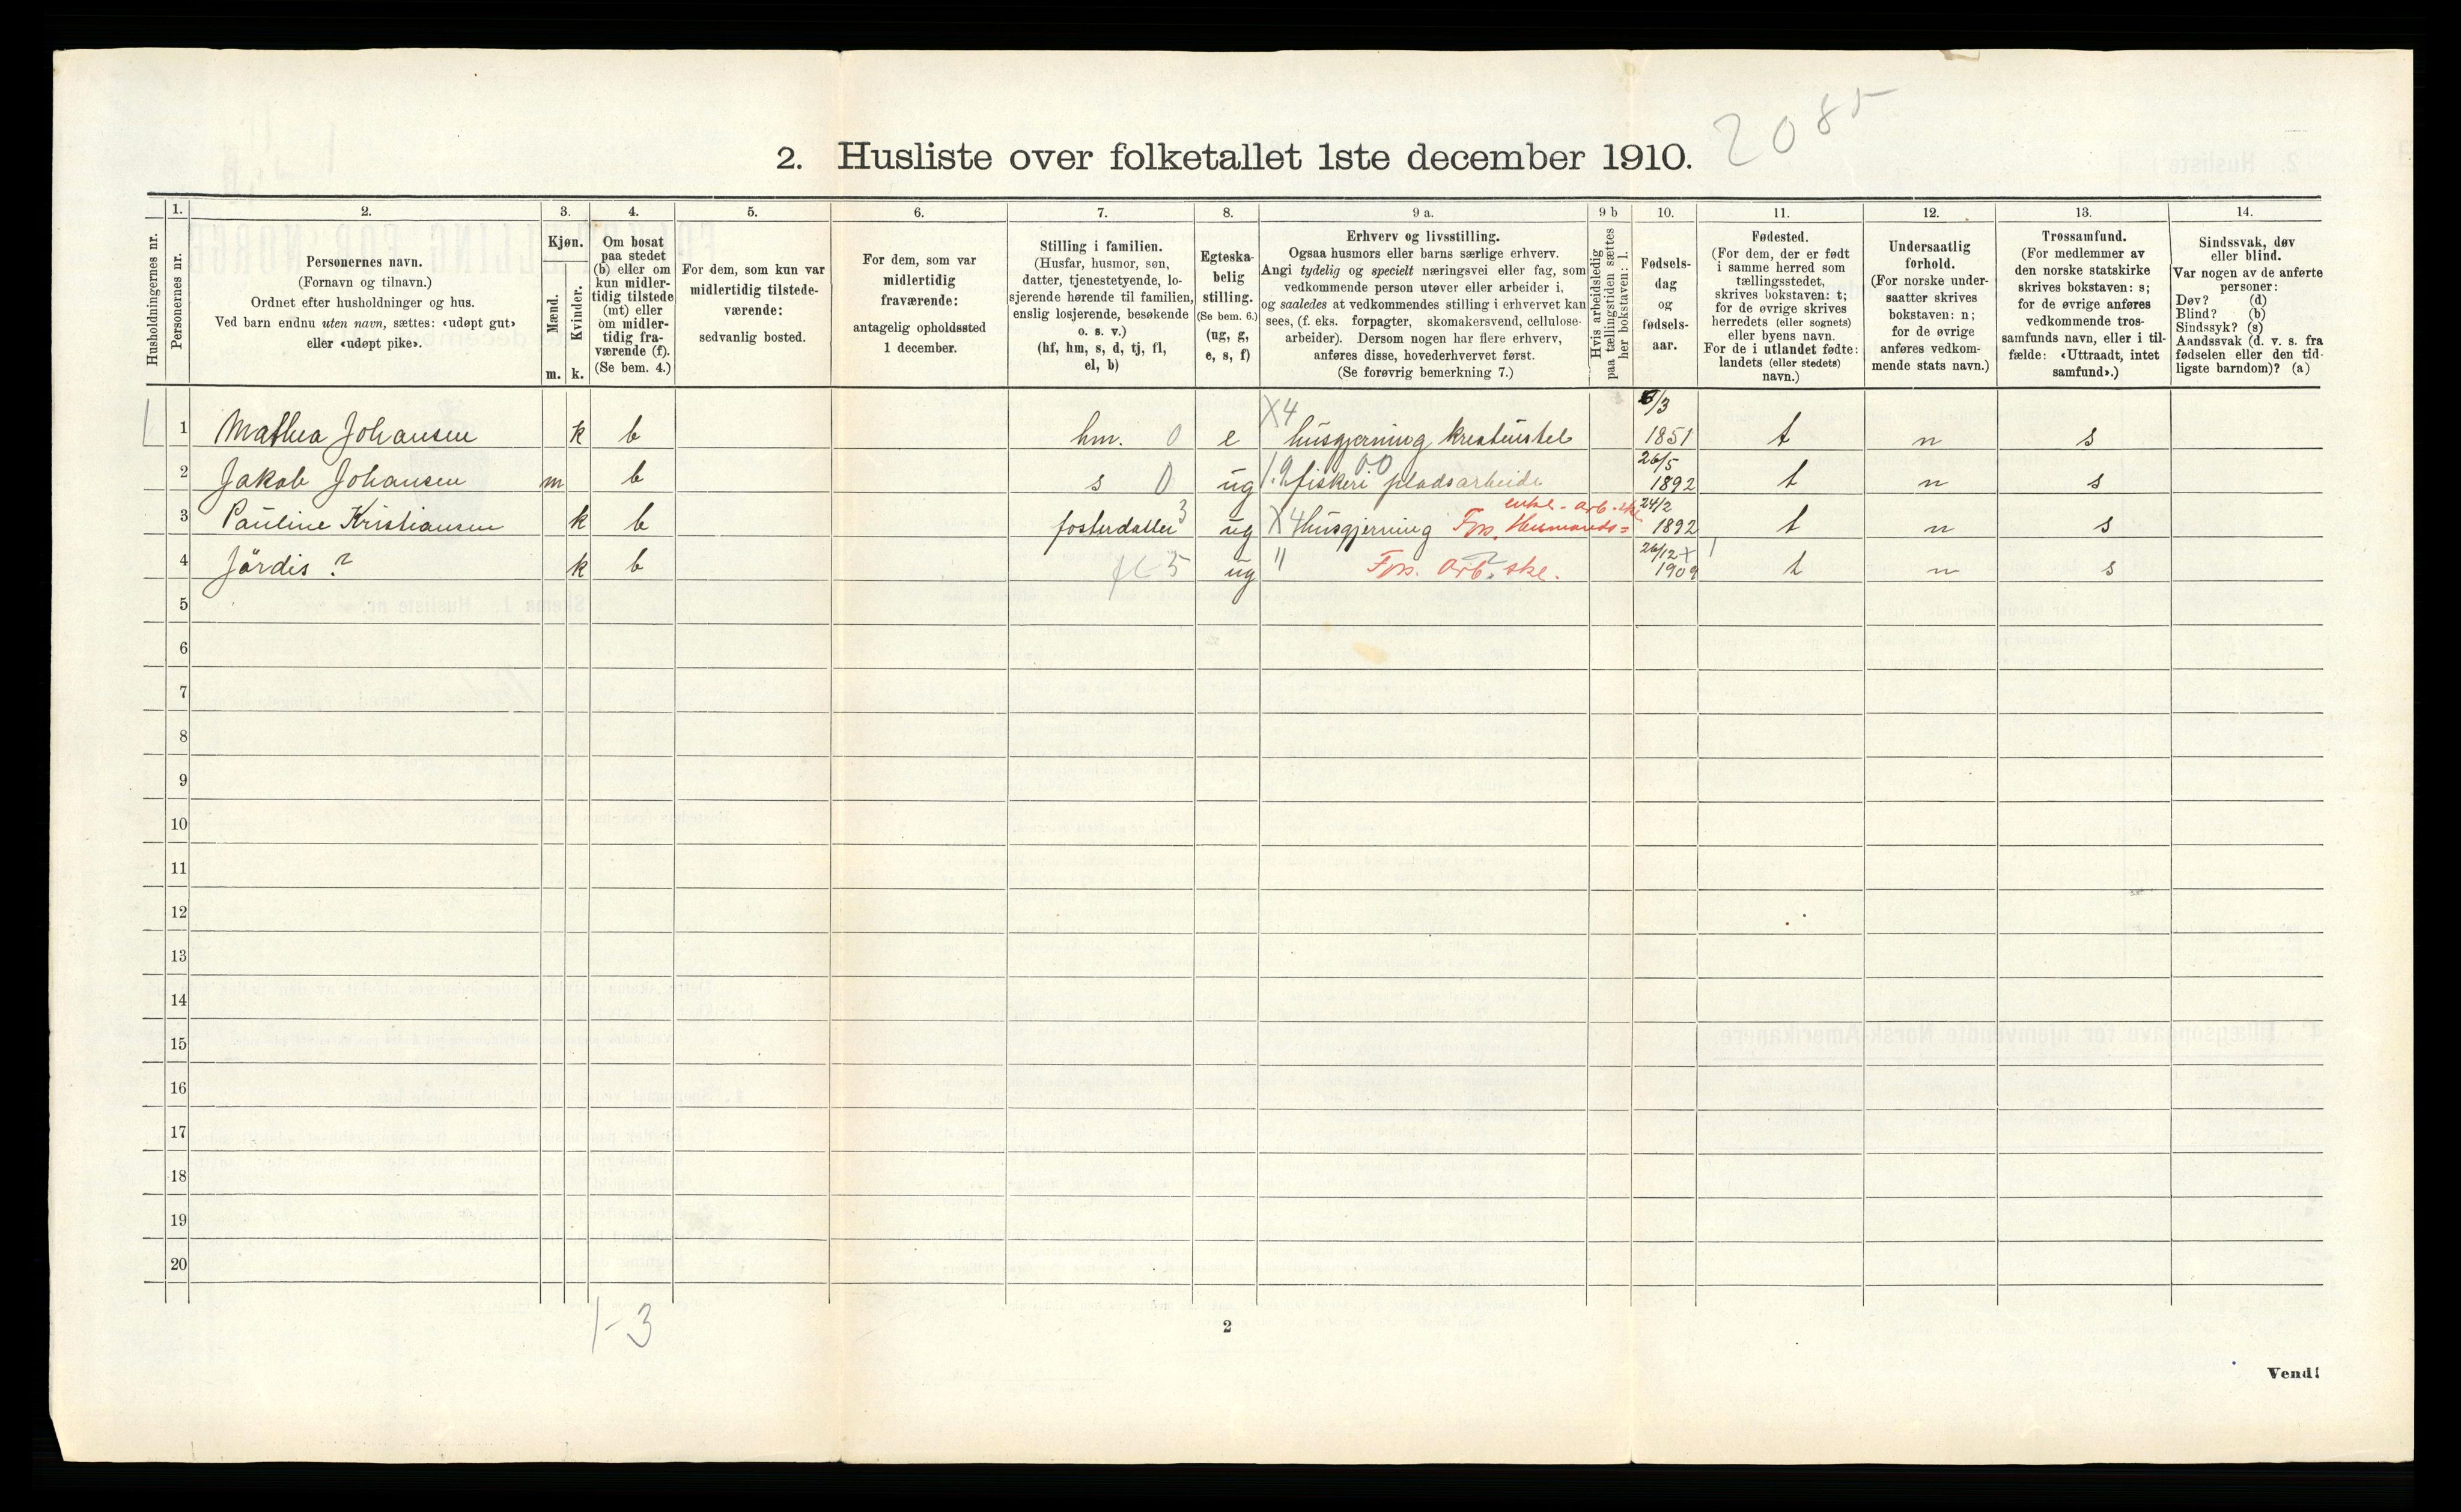 2085
2. Husliste over folketallet 1ste december 1910.
Husholdningernes nr.
1.
Personernes nr.
2.
Personernes navn.
(Fornavn og tilnavn.)
Ordnet efter husholdninger og hus.
Ved barn endnu uten navn, sættes: «udøpt gut»
eller «udøpt pike».
3.
Kjøn.
Mænd.
Kvinder.
m. k.
4.
Om bosat
paa stedet
(b) eller om
kun midler-
tidig tilstede
(mt) eller
om midler-
tidig fra-
værende (f).
(Se bem. 4.)
5.
For dem, som kun var
midlertidig tilstede-
værende:
sedvanlig bosted.
6.
For dem, som var
midlertidig
fraværende:
antagelig opholdssted
1 december.
7.
Stilling i familien.
(Husfar, husmor, søn,
datter, tjenestetyende, lo-
sjerende hørende til familien,
enslig losjerende, besøkende
o. s. v.)
(hf, hm, s, d, tj, fl,
el, b)
8.
Egteska-
belig
stilling.
(Se bem. 6.)
(ug, g,
e, s, f)
9 a.
Erhverv og livsstilling.
Ogsaa husmors eller barns særlige erhverv.
Angi tydelig og specielt næringsvei eller fag, som
vedkommende person utøver eller arbeider i,
og saaledes at vedkommendes stilling i erhvervet kan
sees, (f. eks. forpagter, skomakersvend, cellulose-
arbeider). Dersom nogen har flere erhverv,
anføres disse, hovederhvervet først.
(Se forøvrig bemerkning 7.)
9 b
Hvis arbeidsledig
paa tællingstiden sættes
her bokstaven: l.
10.
Fødsels-
dag
og
fødsels-
aar.
11.
Fødested.
(For dem, der er født
i samme herred som
tællingsstedet,
skrives bokstaven: t;
for de øvrige skrives
herredets (eller sognets)
eller byens navn.
For de i utlandet fødte:
landets (eller stedets)
navn.)
12.
Undersaatlig
forhold.
(For norske under-
saatter skrives
bokstaven: n;
for de øvrige
anføres vedkom-
mende stats navn.)
13.
Trossamfund.
(For medlemmer av
den norske statskirke
skrives bokstaven: s;
for de øvrige anføres
vedkommende tros-
samfunds navn, eller i til-
fælde: «Uttraadt, intet
samfund».)
14.
Sindssvak, døv
eller blind.
Var nogen av de anførte
personer:
Døv? (d)
Blind? (b)
Sindssyk? (s)
Aandssvak (d. v. s. fra
fødselen eller den tid-
ligste barndom)? (a)
1 Mathea Johansen k b hm. 0 e X4 husgjerning kreaturstel /3 1851 t n s
2 Jakob Johansen m b s 0 ug 1.9 fiskeri pladsarbeide 00 26/5 1892 t n s
3 Pauline Kristiansen k b fosterdatter 3 ug X4 Husgjerning Fors. Husmands= enke - arb. ske 24/2 1892 t n s
4 Jördis ? k b fl 5 ug " Fors. arb. ske. 26/12 1909 t n s
5
6
7
8
9
10
11
12
13
14
15
16
17
18
19
20
1-3
2
Vend!